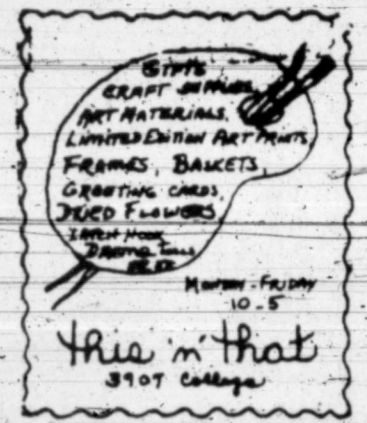 GIFTS
CRAFT SUPPLIES,
ART MATERIALS,
LIMITED EDITION ART PRINTS,
FRAMES, BASKETS,
GREETING CARDS,
DRIED FLOWERS
LATCH HOOK
MONDAY-FRIDAY
10-5
this 'n' that
3907 College